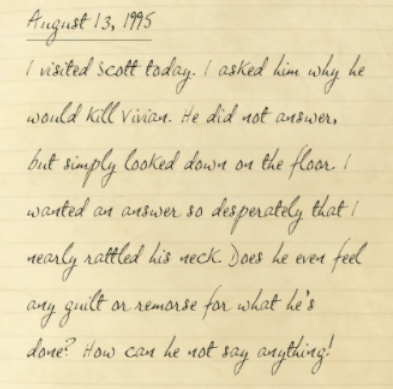 August 13, 1995
I visited Scott today. I asked him why he
would kill Vivian. He did not answer,
but simply looked down on the floor. I
wanted an answer so desperately that I
nearly rattled his neck. Does he even feel
any guilt or remorse for what he's
done? How can he not say anything!